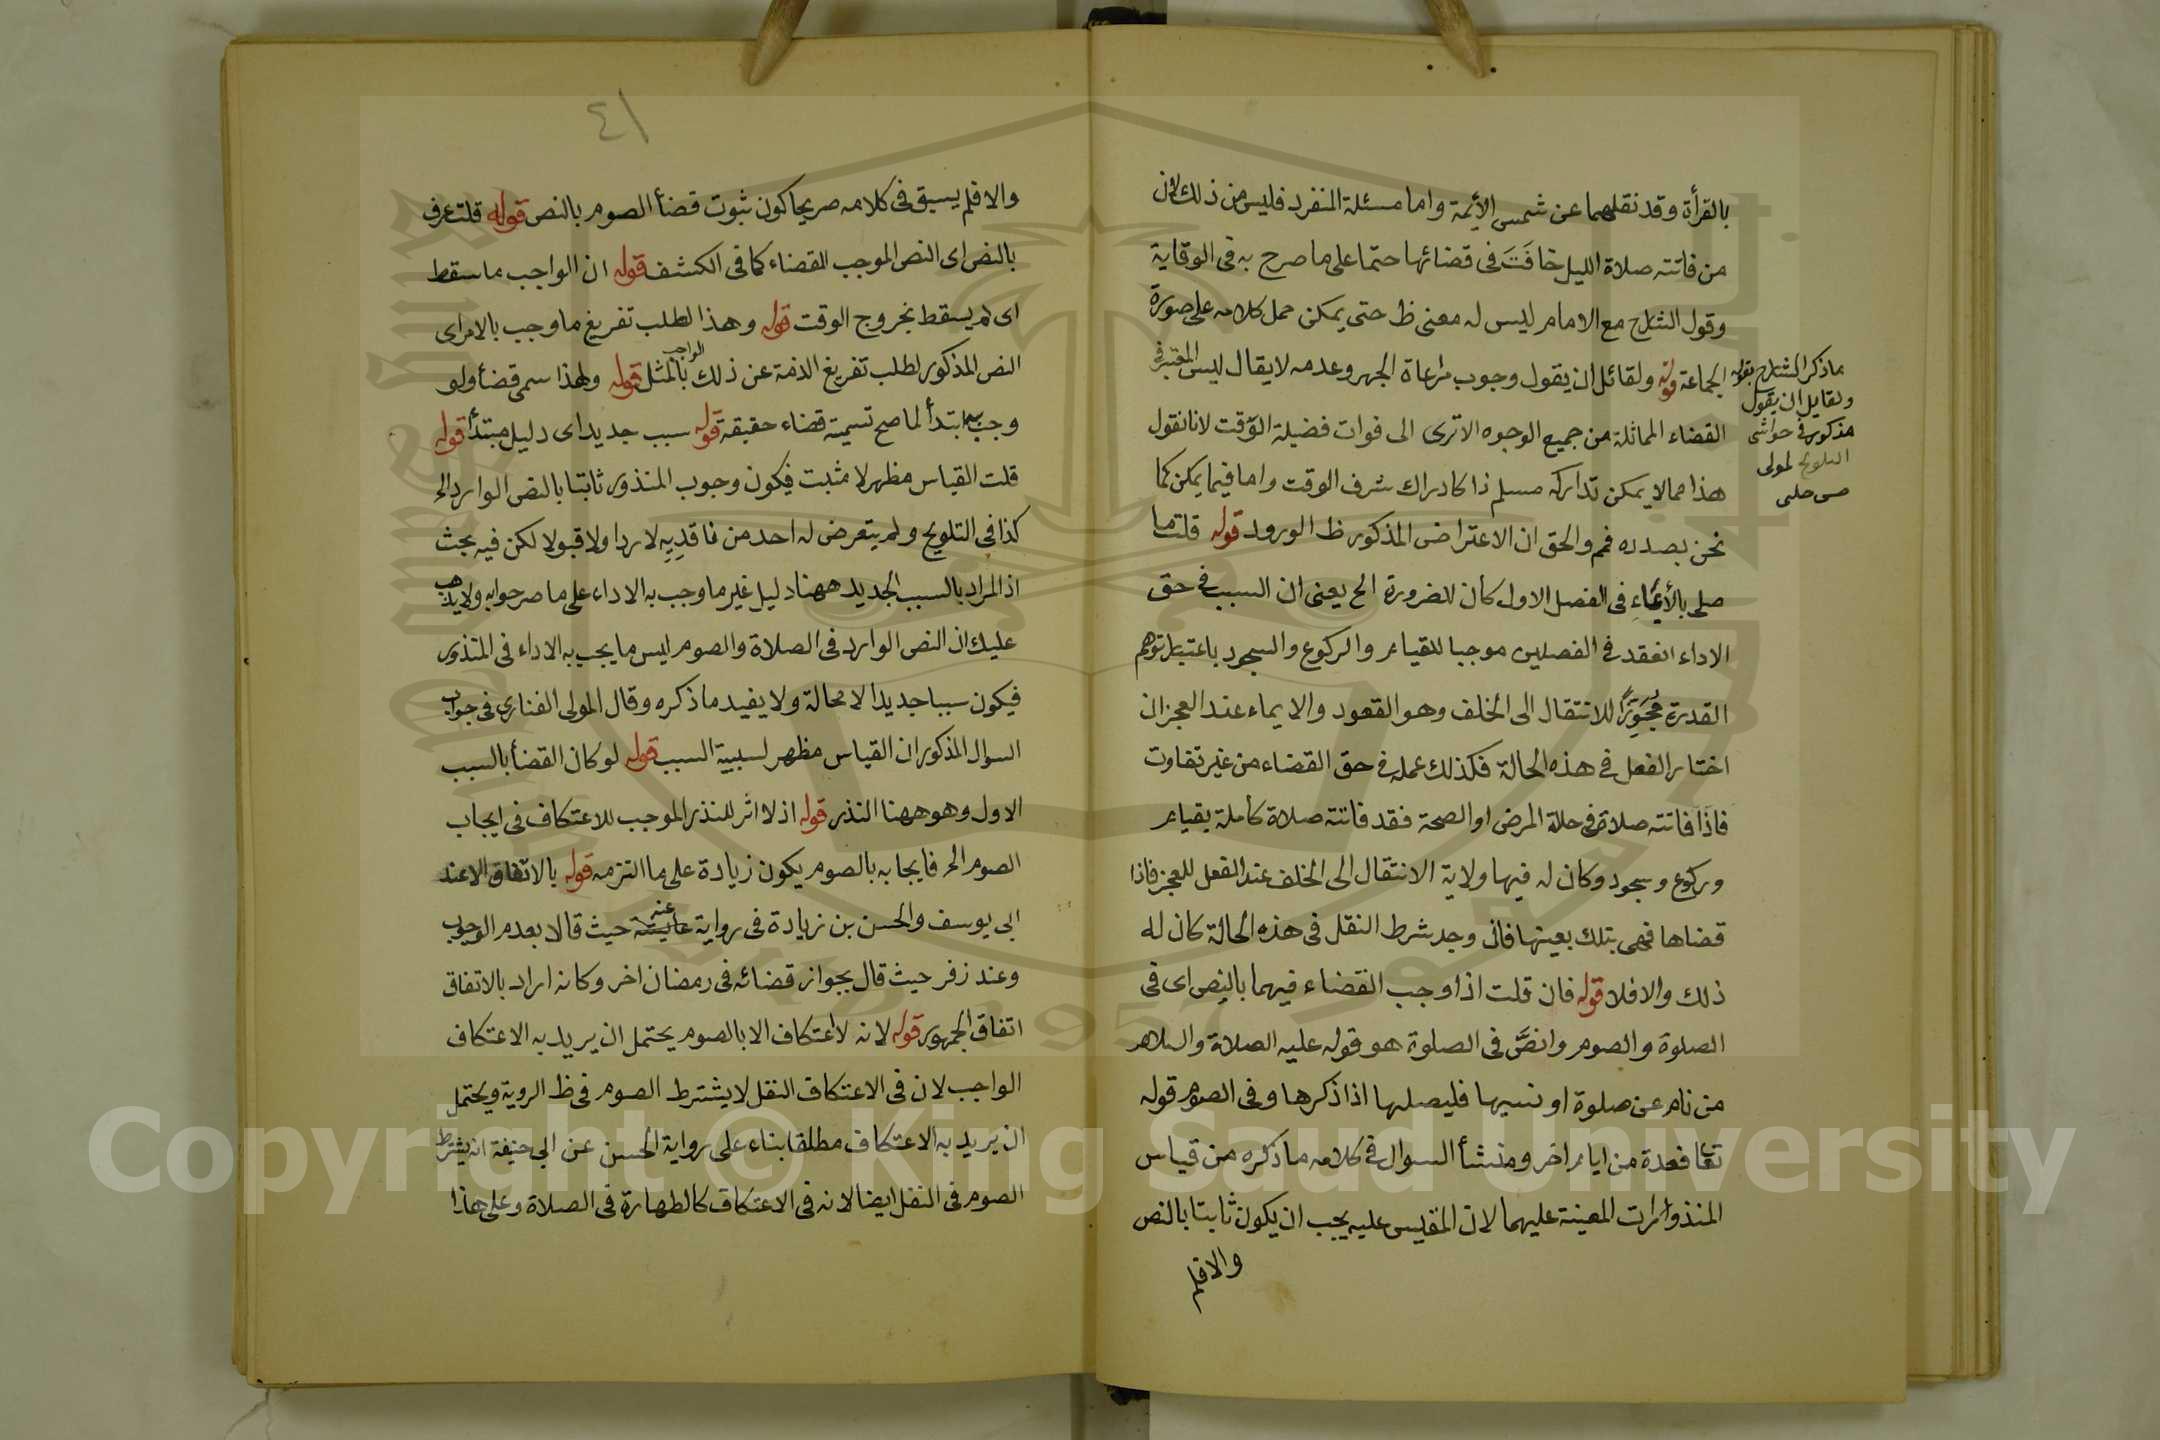 بالقرأة وقد نقلهما عن شمس الأيمة واما مسئلة المنفرد فليس من ذلك لان
من فاتته صلاة الليل خافَتَ فى قضائها حتما على ما صرح به فى الوقاية
وقول الشارح مع الامام ليس له معنى ظ حتى يمكن حمل كلامه على صورة
الجماعة قوله ولقائل ان يقول وجوب مراعاة الجهر وعدمه لا يقال ليس المعتبر فى
القضاء المماثلة من جميع الوجوه الا ترى الى فوات فضيلة الوقت لانا نقول
هذا مما لا يمكن تداركه مسلم ذا كادراك شرف الوقت واما فيما يمكن كما
نحن بصدده فمم والحق ان الاعتراض المذكور ظ الورود قوله قلت ما
صلى بالأيماء فى الفصل الاول كان للضرورة الح يعنى ان السبب فى حق
الاداء انعقد فى الفصلين موجبا للقيام والركوع والسجود باعتبار توهم
القدرة مُجَوِّزًا للانتقال الى الخلف وهو القعود والايماء عند العجز ان
اختار الفعل فى هذه الحالة فكذلك عمله فى حق القضاء من غير تفاوت
فاذا فاتته صلاة فى حلة المرض او الصحة فقد فاتته صلاة كاملة بقيام
وركوع وسجود وكان له فيها ولاية الانتقال الى الخلف عند الفعل للعجز فاذا
قضاها فهى بتلك بعينها فان وجد شرط النقل فى هذه الحالة كان له
ذلك والا فلا قوله فان قلت اذا وجب القضاء فيهما بالنص اى فى
الصلوة والصوم والنصَّ فى الصلوة هو قوله عليه الصلاة والسلام
من نام عن صلوة او نسيها فليصلها اذا ذكرها وفى الصوم قوله
تعا فعدة من ايام اخر ومنشأ السوال فى كلامه ما ذكره من قياس
المنذورات المعينة عليهما لان المقيس عليه يجب ان يكون ثابتا بالنص
والا فلم
ما ذكر الشارح بقوله
ولقايل ان يقول
مذكور فى حواشى
التلويح لمولى
حسن چلبى
٤١
والا فلم يسبق فى كلامه صريحا كون ثبوت قضأ الصوم بالنص قوله قلت عرف
بالنص اى النص الموجب للقضاء كما فى الكشف قوله ان الواجب ما سقط
اى لم يسقط بخروج الوقت قوله وهذا لطلب تفريغ ما وجب بالامر اى
النص المذكور لطلب تفريغ الذمة عن ذلك الواجب بالمثل قوله ولهذا سمى قضأ ولو
وجب ابتدأ لما صح تسيمته قضاء حقيقة قوله سبب جديد اى دليل مبتدأ قوله
قلت القياس مظهر لا مثبت فيكون وجوب المنذور ثابتا بالنص الوارد الح
كذا فى التلويح ولم يتعرض له احد من ناقديه لا ردا ولا قبولا لكن فيه بحث
اذ المراد بالسبب الجديد ههنا دليل غير ما وجب به الاداء على ما صرحوا به ولا يذهب
عليك ان النص الوارد فى الصلاة والصوم ليس ما يجب به الاداء فى المنذور
فيكون سببا جديدا لا محالة ولا يفيد ما ذكره وقال المولى الفنارى فى جواب
السوال المذكور ان القياس مظهر لسببية السبب قوله لو كان القضأ بالسبب
الاول وهو ههنا النذر قوله اذ لا اثر للنذر الموجب للاعتكاف فى ايجاب
الصوم الح فايجابه بالصوم يكون زيادة على ما التزمه قوله بالاتفاق الا عند
ابى يوسف والحسن بن زيادة فى رواية عنه حيث قالا بعدم الوجوب
وعند زفر حيث قال بجواز قضائه فى رمضان اخر وكانه اراد بالاتفاق
اتفاق الجمهور قوله لانه لا اعتكاف الا بالصوم يحتمل ان يريد به الاعتكاف
الواجب لان فى الاعتكاف النفل لا يشترط الصوم فى ظ الروية ويحتمل
ان يريد به الاعتكاف مطلقا بناء على رواية الحسن عن ابى حنيفة انه يشترط
الصوم فى النفل ايضا لانه فى الاعتكاف كالطهارة فى الصلاة وعلى هذا
Copyright © King Saud University
1957